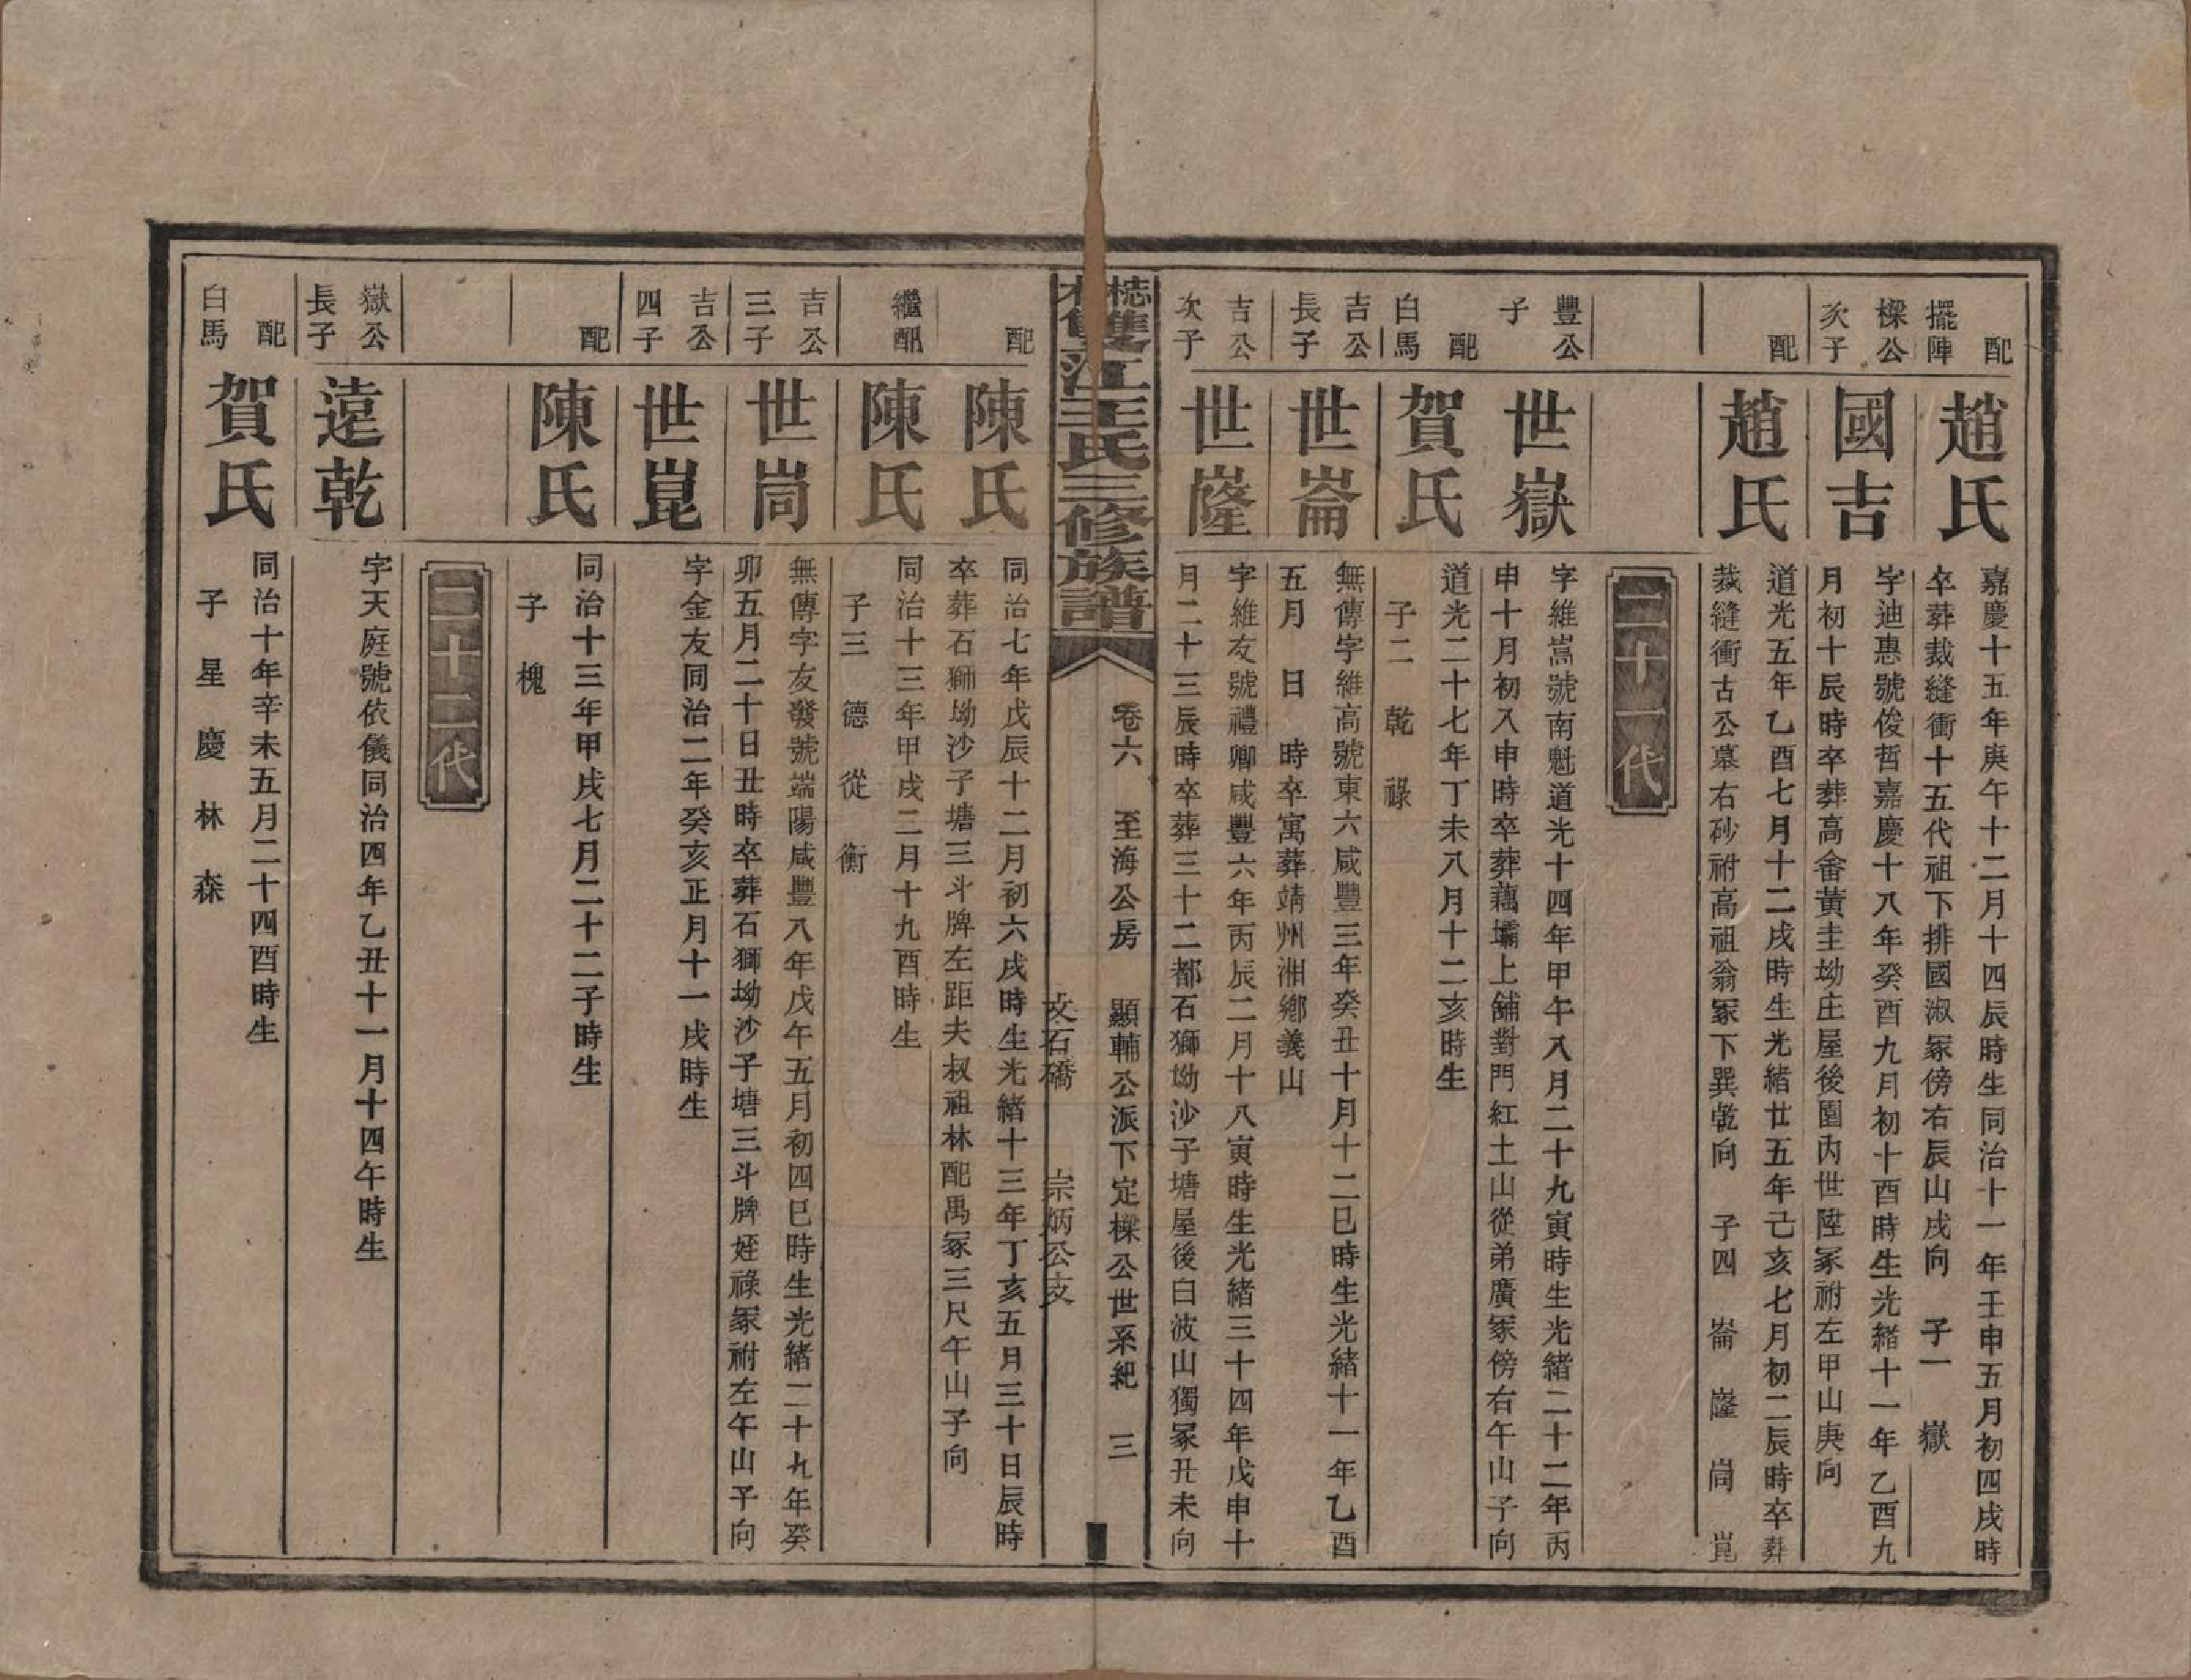 配擺陣
趙氏
嘉慶十五年庚午十二月十四辰時生同治十一年壬申五月初四戌時
卒葬裁縫衝十五代祖下排國淑冢傍右辰山戌向 子一 嶽
樑公次子
國吉
字迪惠號俊哲嘉慶十八年癸酉九月初十酉時生光緒十一年乙酉九
月初十辰時卒葬高畬黃圭坳庄屋後園內世陞冢祔左甲山庚向
配
趙氏
道光五年乙酉七月十二戌時生光緒廿五年己亥七月初二辰時卒葬
裁縫衝古公墓右砂祔高祖翁冢下巽乾向 子四 崙 隆 峝 崑
二十一代
豐公子
世嶽
字維嵩號南魁道光十四年甲午八月二十九寅時生光緒二十二年丙
申十月初入申時卒葬藕壩上舖對門紅土山從弟廣冢傍右午山子向
配白馬
賀氏
道光二十七年丁未八月十二亥時生
子二 乾 祿
吉公長子
世崙
無傳字維高號東六咸豐三年癸丑十月十二巳時生光緒十一年乙酉
五月 日 時卒寓葬靖州湘鄉義山
吉公次子
世隆
字維友號禮卿咸豐六年丙辰二月十八寅時生光緒三十四年戊申十
月二十三辰時卒葬三十二都石獅坳沙子塘屋後白波山獨冢丑未向
雙江王氏三修族譜
卷六 至海公房 顯輔公派下定樑公世系紀 三
文石橋 宗炳公支
配
陳氏
同治七年戊辰十二月初六戌時生光緒十三年丁亥五月三十日辰時
卒葬石獅坳沙子塘三斗牌左距夫叔祖林配禹冢三尺午山子向
繼配
陳氏
同治十三年甲戌二月十九酉時生
子三 德 從 衡
吉公三子
世峝
無傳字友發號端陽咸豐八年戊午五月初四巳時生光緒二十九年癸
卯五月二十日丑時卒葬石獅坳沙子塘三斗牌姪祿冢祔左午山子向
吉公四子
世崑
字金友同治二年癸亥正月十一戌時生
配
陳氏
同治十三年甲戌七月二十二子時生
子 槐
二十二代
嶽公長子
遠乾
字天庭號依儀同治四年乙丑十一月十四午時生
配白馬
賀氏
同治十年辛未五月二十四酉時生
子 星 慶 林 森